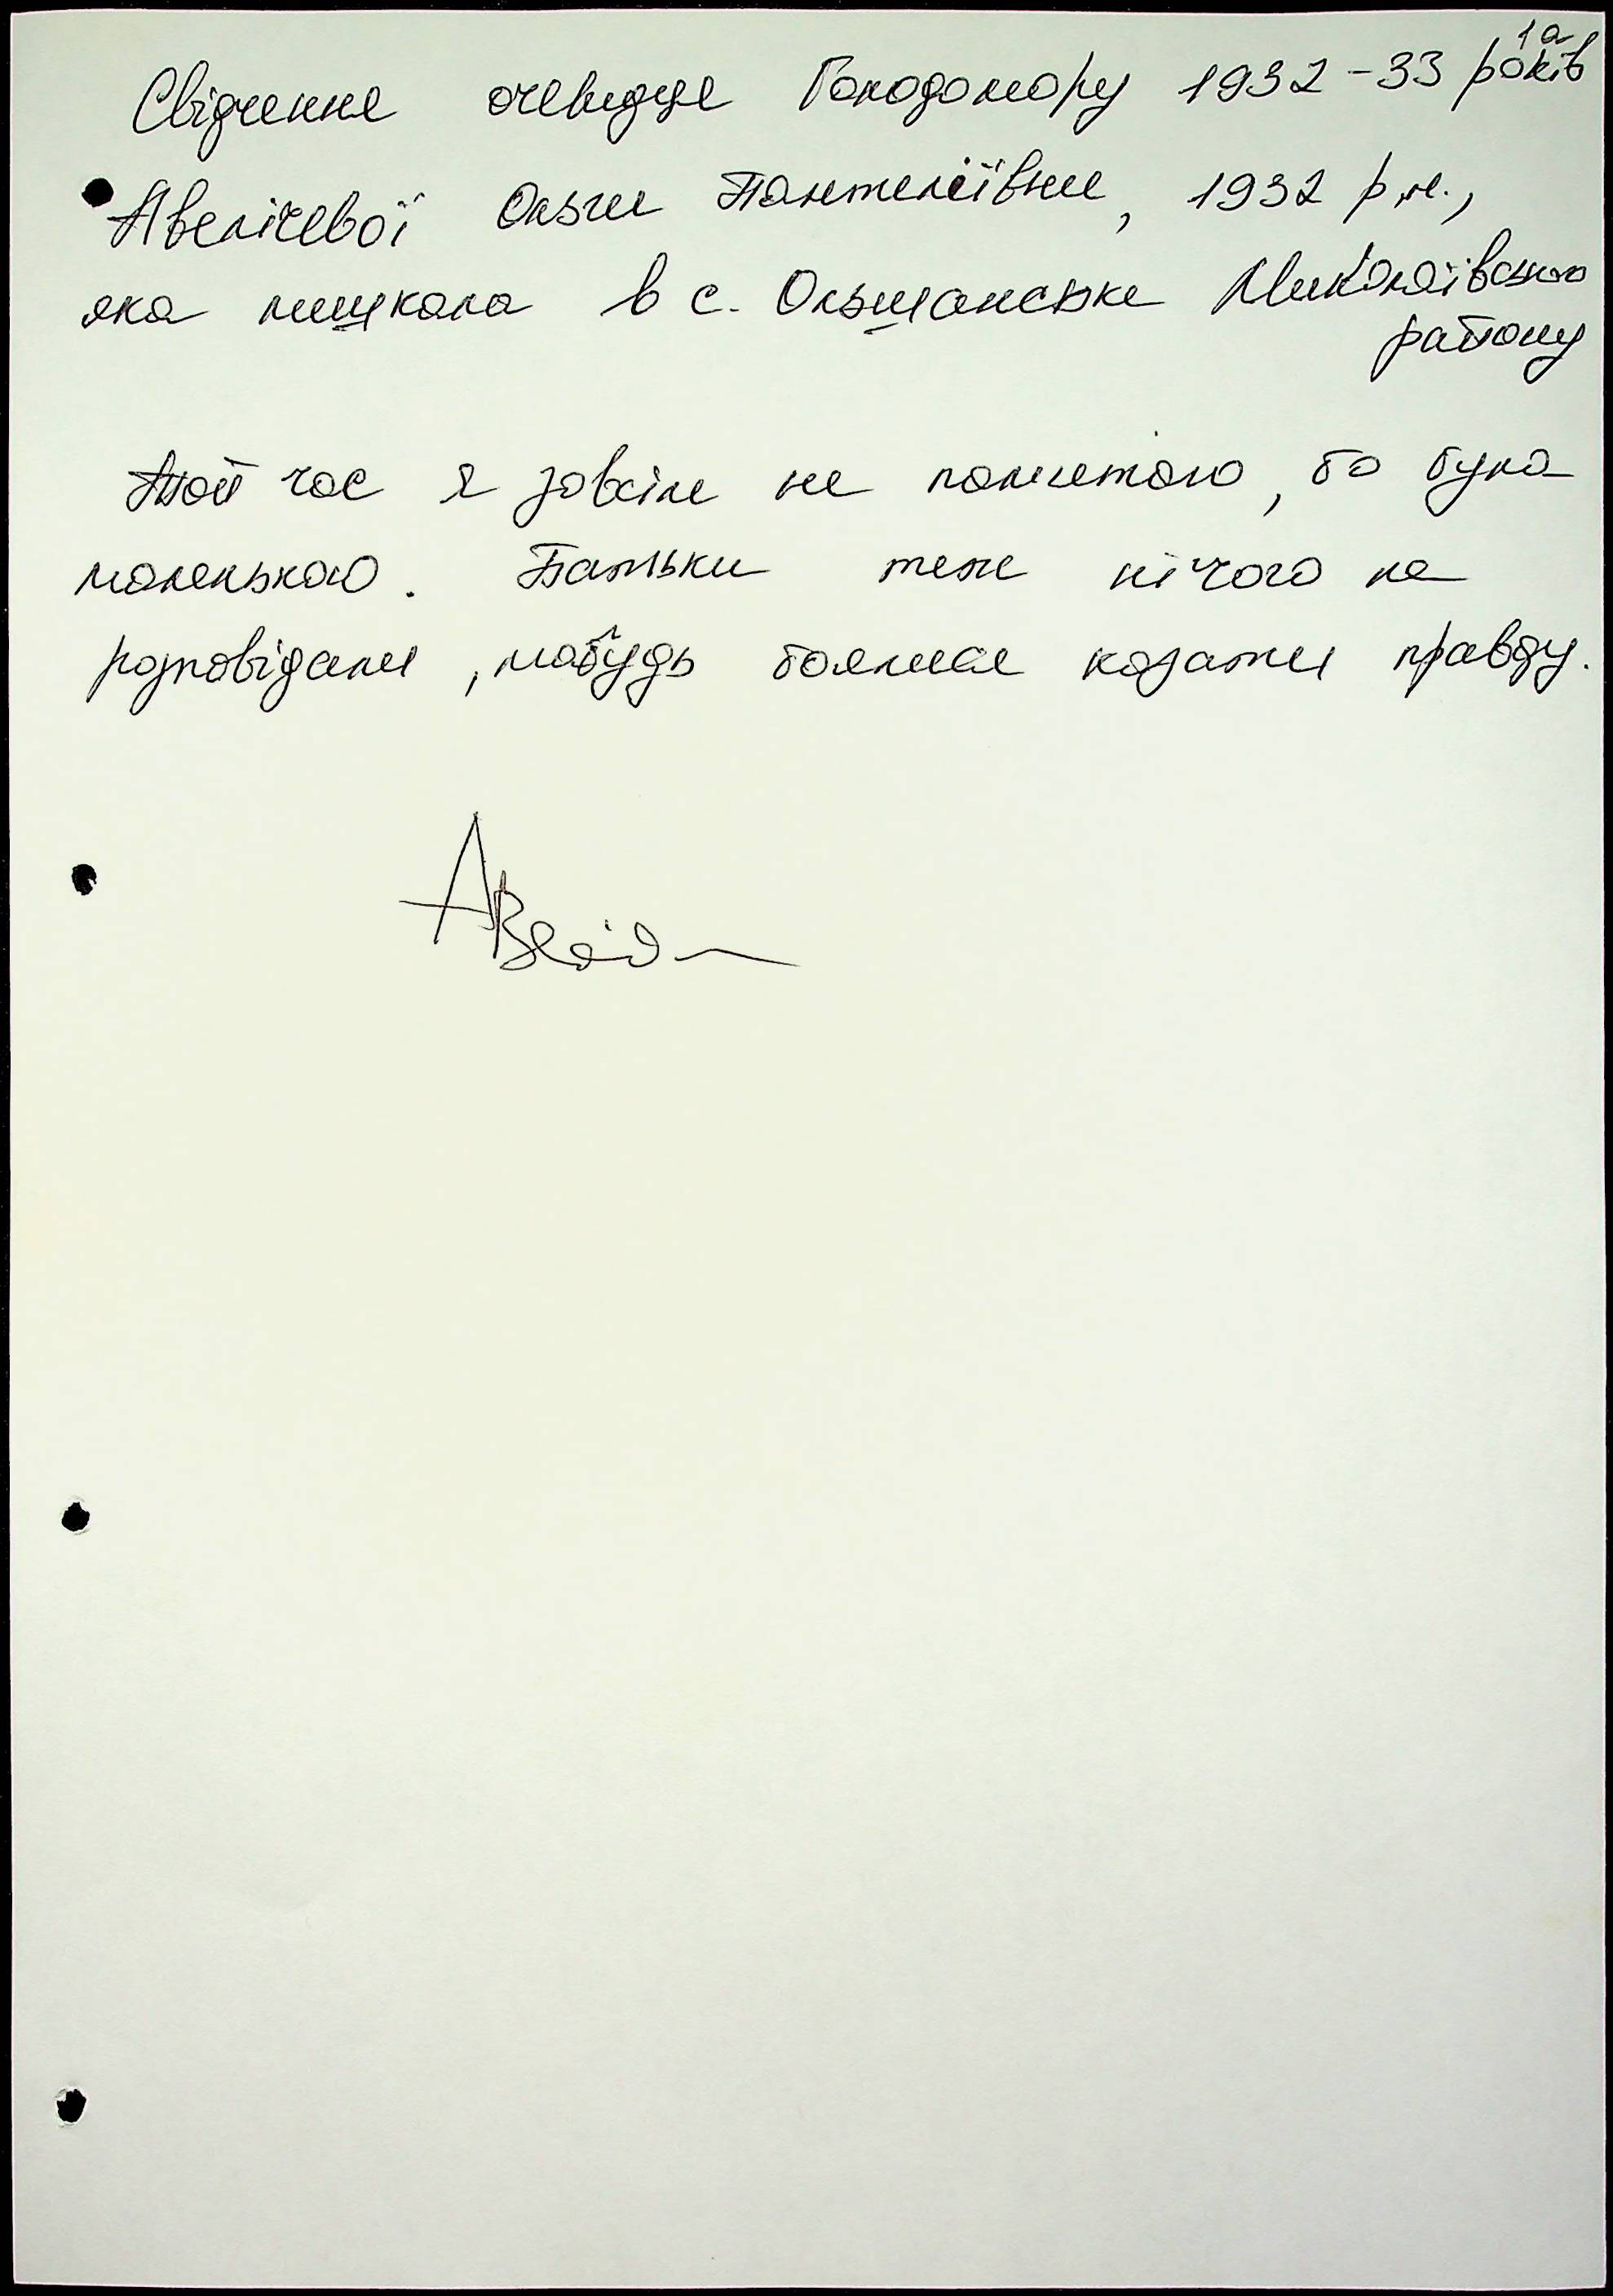 1а
Свідчення очевидця Голодомору 1932-33 років
Авелічевої Ольги Пантеліївни, 1932 р.н.,
яка мешкала в с. Ольшанське Миколаївського
району
Той час я зовсім не пам'ятаю, бо була
маленькою. Батьки теж нічого не
розповідали, мабудь боялися казати правду.